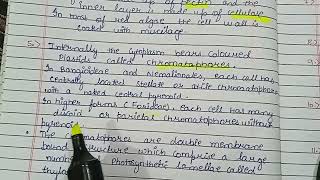 up of pectin and the
inner layer is made up of cellulose
In most of red algae the cell wall is
coated with mucilage.
5) Internally the cytoplasm bears coloured
Plastids called chromatophores.
In Bangioideae and Nemalionales, each cell has
centrally located stellate or axile chromatophore
with a naked central pyrenoid.
In higher forms (Florideae), each cell has many
discoid or parietal chromatophores without
pyrenoids.
The chromatophores are double membrane
bound structure which comprise a large
number photosynthetic lamellae called
thyl